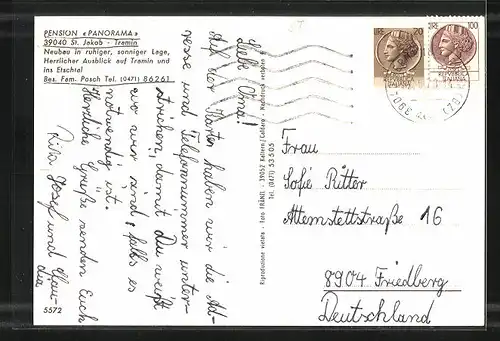 PENSION «PANORAMA»
39040 St. Jakob - Tramin
Neubau in ruhiger, sonniger Lage,
Herrlicher Ausblick auf Tramin und
ins Etschtal
Bes. Fam. Posch Tel. (0471) 86261
Liebe Oma!
Auf der Karten haben wir die Ad-
resse und Telefonnummer unter-
strichen damit Du weißt
wo wir sind, falls es
notwendig ist.
Herzliche Grüße senden Euch
Rita, Josef und Clau-
dia
5572
Riproduzione vietata - Foto FRÄNZL - 39052 Kaltern/Caldaro - Nachdruck verboten
Tel. (0471) 53505
LIRE 100
ITALIANA
Frau
Sofie Ritter
Attemstettstraße 16
8904 Friedberg
Deutschland